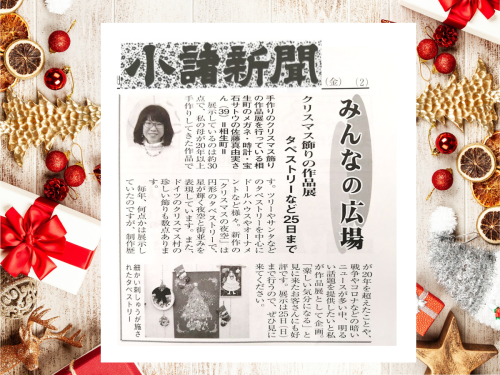 小諸新聞
(金) (2)
みんなの広場
クリスマス飾りの作品展
タペストリーなど25日まで
手作りのクリスマス飾り
の作品展を行っている相
生町のメガネ・時計・宝
石サトウの佐藤真由実さ
ん(39)=相生町=
「展示しているのは約30
点で、私の母が20年以上
手作りしてきた作品で
す。ツリーやサンタなど
のタペストリーを中心に
ドールハウスやオーナメ
ントなど様々。新作の
『クリスマスの夜空』は
円形のタペストリーで、
星が輝く夜空と街並みを
表現しています。また、
ドイツのクリスマス村の
珍しい飾りも数点ありま
す。
毎年、何点かは展示し
ていたのですが、制作歴
が20年を超えたことや、
戦争やコロナなどの暗い
ニュースが多い中、明る
い話題を提供したいと私
が作品展として企画。
『楽しい気分になる』と
見に来たお客さんにも好
評です。展示は25日(日)
まで行うので、ぜひ見に
来てください。
細かい刺しゅうが施さ
れたタペストリー